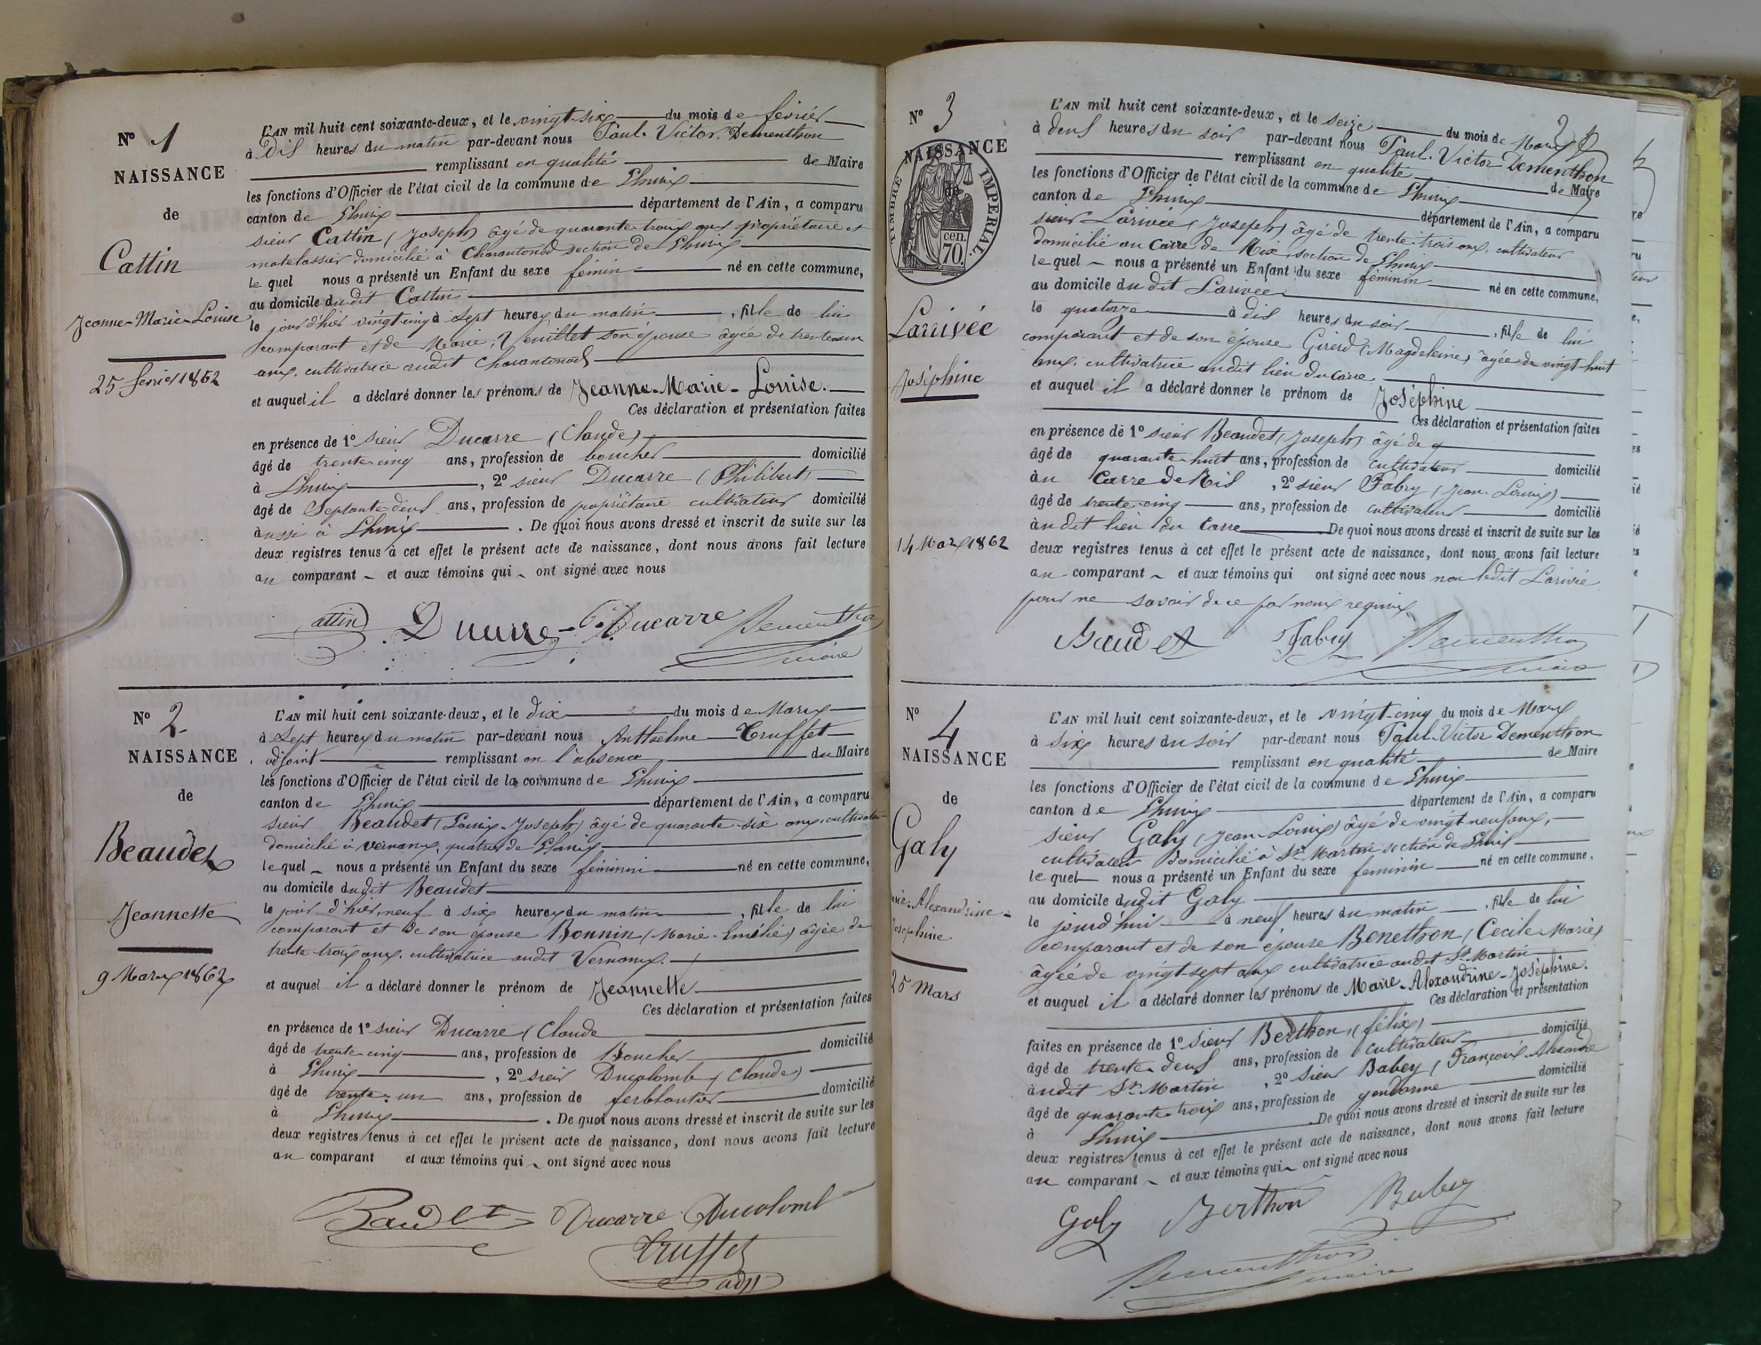 N° 1
NAISSANCE
de
Cattin
Jeanne-Marie-Louise
25 février 1862
L'AN mil huit cent soixante-deux, et le vingt-six du mois de février
à dix heures du matin par-devant nous Paul-Victor Dementhon
remplissant en qualité de Maire
les fonctions d'Officier de l'état civil de la commune de Lhuis
canton de Lhuis département de l'Ain, a comparu
sieur Cattin (Joseph) âgé de quarante-trois ans propriétaire et
matelassier domicilié à Charantonod section de Lhuis
le quel nous a présenté un Enfant du sexe féminin né en cette commune,
au domicile dudit Cattin
le jour d'hier vingt cinq à sept heures du matin, fille de lui
comparant et de Marie Veuillet son épouse âgée de
ans, cultivatrice audit Charantonod
et auquel il a déclaré donner les prénoms de Jeanne-Marie-Louise.
Ces déclaration et présentation faites
en présence de 1° sieur Ducarre (Claude)
âgé de trente cinq ans, profession de boucher domicilié
à Lhuis, 2° sieur Ducarre (Philibert)
âgé de Septante deux ans, profession de propriétaire cultivateur domicilié
aussi à Lhuis. De quoi nous avons dressé et inscrit de suite sur les
deux registres tenus à cet effet le présent acte de naissance, dont nous avons fait lecture
au comparant et aux témoins qui ont signé avec nous
Cattin Ducarre Ducarre Dementhon
maire
N° 2
NAISSANCE
de
Beaudet
Jeannette
9 Mars 1862
L'AN mil huit cent soixante-deux, et le dix du mois de Mars
à Sept heures du matin par-devant nous Anthelme Truffet
adjoint remplissant en l'absence du Maire
les fonctions d'Officier de l'état civil de la commune de Lhuis
canton de Lhuis département de l'Ain, a comparu
sieur Beaudet (Louis-Joseph) âgé de quarante-six ans, cultivateur
domicilié à Vernans, quartier de Lhuis
le quel nous a présenté un Enfant du sexe féminin né en cette commune,
au domicile dudit Beaudet
le jour d'hier, neuf à six heures du matin, fille de lui
comparant et de son épouse Bonnin (Marie-Emélie) âgée de
trente trois ans, cultivatrice audit Vernans.
et auquel il a déclaré donner le prénom de Jeannette
Ces déclaration et présentation faites
en présence de 1° sieur Ducarre (Claude
âgé de trente cinq ans, profession de Boucher domicilié
à Lhuis, 2° sieur Ducolomb (Claude)
âgé de trente-un ans, profession de ferblantier domicilié
à Lhuis. De quoi nous avons dressé et inscrit de suite sur les
deux registres tenus à cet effet le présent acte de naissance, dont nous avons fait lecture
au comparant et aux témoins qui ont signé avec nous
Baudet Ducarre Ducolomb
Truffet
adjt
N° 3
NAISSANCE
TIMBRE IMPERIAL.
70 cen.
Larrivée
Joséphine
14 Mars 1862
L'AN mil huit cent soixante-deux, et le seize du mois de Mars
à deux heures du soir par-devant nous Paul-Victor Dementhon
remplissant en qualité de Maire
les fonctions d'Officier de l'état civil de la commune de Lhuis
canton de Lhuis département de l'Ain, a comparu
sieur Larivée (Joseph) âgé de trente-trois ans, cultivateur
domicilié au Carre de Rix section de Lhuis
le quel nous a présenté un Enfant du sexe féminin né en cette commune,
au domicile du dit Larivée
le quatorze à dix heures du soir, fille de lui
comparant et de son épouse Girerd (Magdeleine) âgée de vingt-huit
ans, cultivatrice audit lieu du Carre
et auquel il a déclaré donner le prénom de Joséphine
Ces déclaration et présentation faites
en présence de 1° sieur Beaudet (Joseph) âgé de
âgé de quarante-huit ans, profession de cultivateur domicilié
au Carre de Ris, 2° sieur Fabry (Jean-Louis)
âgé de trente-cinq ans, profession de cultivateur domicilié
audit lieu du Carre De quoi nous avons dressé et inscrit de suite sur les
deux registres tenus à cet effet le présent acte de naissance, dont nous avons fait lecture
au comparant et aux témoins qui ont signé avec nous non ledit Larivée
pour ne savoir de ce par nous requis
Baudet Fabry Dementhon
maire
N° 4
NAISSANCE
de
Galy
Alexandrine-
Joséphine
25 Mars
L'AN mil huit cent soixante-deux, et le vingt-cinq du mois de Mars
à six heures du soir par-devant nous Paul-Victor Dementhon
remplissant en qualité de Maire
les fonctions d'Officier de l'état civil de la commune de Lhuis
canton de Lhuis département de l'Ain, a comparu
sieur Galy (Jean-Louis) âgé de vingt-neuf ans,
cultivateur domicilié à St Martin section de Lhuis
le quel nous a présenté un Enfant du sexe féminin né en cette commune,
au domicile dudit Galy
le jourd'hui à neuf heures du matin, fille de lui
comparant et de son épouse Benetthon (Cécile-Marie)
âgée de vingt-sept ans cultivatrice audit St Martin
et auquel il a déclaré donner les prénoms de Marie-Alexandrine-Joséphine.
Ces déclaration et présentation
faites en présence de 1° sieur Berthon (félix)
âgé de trente-deux ans, profession de cultivateur domicilié
audit St Martin, 2° sieur Babey (François
âgé de quarante-trois ans, profession de gendarme domicilié
à Lhuis De quoi nous avons dressé et inscrit de suite sur les
deux registres tenus à cet effet le présent acte de naissance, dont nous avons fait lecture
au comparant et aux témoins qui ont signé avec nous
Galy Berthon Babey
Dementhon
maire